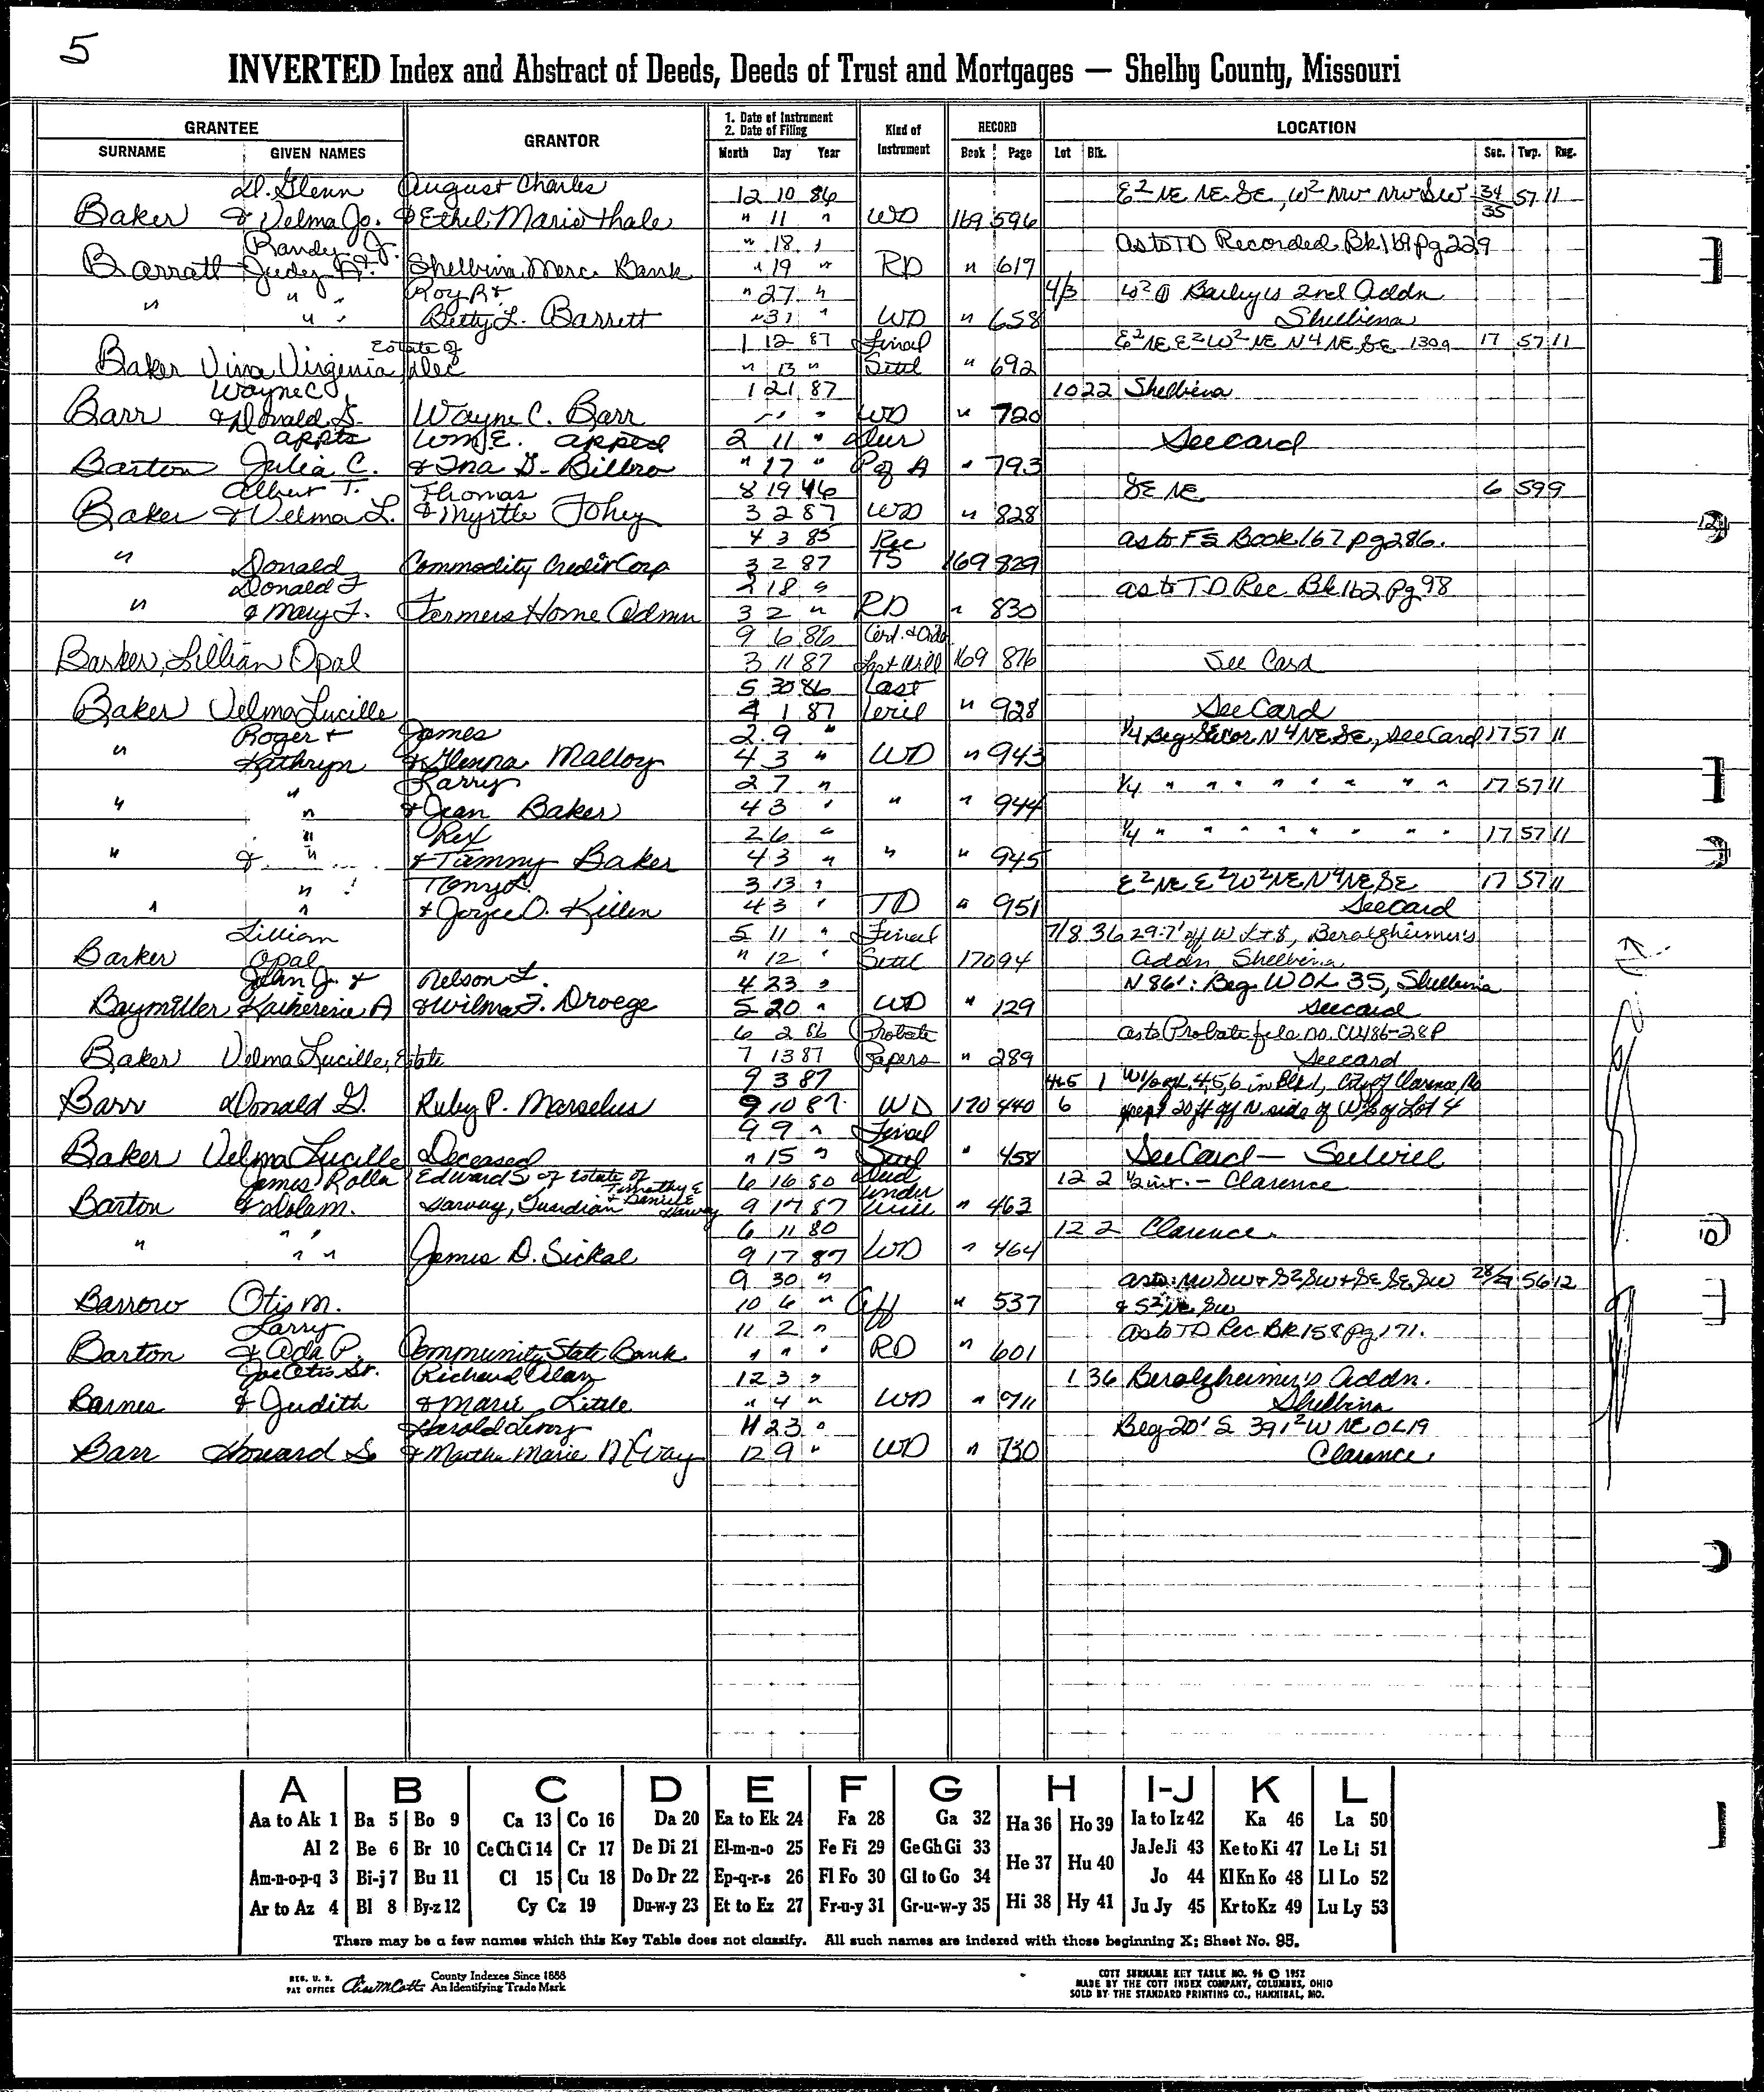 5
INVERTED Index and Abstract of Deeds, Deeds of Trust and Mortgages — Shelby County, Missouri
GRANTEE GRANTOR 1. Date of Instrument 2. Date of Filing Kind of Instrument RECORD LOCATION
SURNAME GIVEN NAMES Month Day Year Book Page Lot Blk. Sec. Twp. Rng.
D. Glenn August Charles 12 10 86 E² NE NE SE, W² NW NW SW 34 57 11
Baker & Velma Jo. & Ethel Marie Thale " 11 " WD 169 596 35
Randy J. " 18 " as to TD Recorded Bk 169 Pg 229
Barratt Judy Shelbina Merc. Bank " 19 " RD " 617
" " " Roy R & " 27 " 4/3 W² Bailey's 2nd Addn
" " Betty L. Barrett " 31 " WD " 658 Shelbina
Estate of 1 12 87 Final E² NE E² W² NE N4 NE SE 17 57 11
Baker Vina Virginia, dec " 13 " Settl " 692
Wayne C. 1 21 87 10 22 Shelbina
Barr & Donald S. Wayne C. Barr " " " WD " 720
appts Wm. E. apped 2 11 " Dur See card
Barton Julia C. & Ina G. Billro " 17 " P of A " 793
Albert T. Thomas 8 19 46 SE NE 6 59 9
Baker & Velma L. & Myrtle Fohey 3 2 87 WD " 828
4 3 85 Rec as to FS Book 167 pg 286.
" Donald Commodity Credit Corp 3 2 87 TS 169 829
Donald F 2 18 " as to TD Rec Bk 162 Pg 98
" & Mary F. Farmers Home Admn 3 2 " RD " 830
9 6 86 Cert. & Ord
Barker, Lillian Opal 3 11 87 Last Will 169 876 See Card
5 30 86 Last
Baker Velma Lucille 4 1 87 Will " 928 See Card
Roger & James 2 9 " 1/4 Beg SE cor N4 NE SE, See Card 17 57 11
" Kathryn & Glenna Malloy 4 3 " WD " 943
" Larry 2 7 " 1/4 " " " " " " " 17 57 11
" " & Jean Baker 4 3 " " " 944
" Rex 2 6 " 1/4 " " " " " " " 17 57 11
" & " & Tammy Baker 4 3 " " " 945
" Tony L. 3 13 " E² NE E² W² NE N4 NE SE 17 57 11
" " & Joyce O. Killen 4 3 " TD " 951 See Card
Lillian 5 11 " Final 7/8 36 29.7' of W Lt 8, Beralzheimer's
Barker Opal " 12 " Settl 170 94 Addn Shelbina
John J. & Nelson L. 4 23 " N 86': Beg. W OL 35, Shelbina
Baymiller Katherine A & Wilma F. Droege 5 20 " WD " 129 See card
6 2 86 Probate as to Probate file no. CV486-28P
Baker Velma Lucille, Estate 7 13 87 Papers " 289 See card
9 3 87 4&5 1 W½ of L 4,5,6 in Blk 1, City of Clarence Mo
Barr Donald G. Ruby P. Marselus 9 10 87 WD 170 440 6 except 20 ft off N. side of W½ of Lot 4
9 9 " Final
Baker Velma Lucille Deceased " 15 " Settl " 458 See Card — See Will
James Rolla Edward S of Estate of Timothy E 6 16 80 Deed 12 2 ½ int. — Clarence
Barton & Dola M. Harvey, Guardian & Daniel E Harvey 9 17 87 under Will " 463
" " 6 11 80 12 2 Clarence.
" " " James D. Sickal 9 17 87 WD " 464
9 30 " as to: NW SW & S² SW & SE SE SW 28/29 56 12
Barrow Otis M. 10 6 " Aff " 537 & S² NE SW
Larry 11 2 " as to TD Rec Bk 158 pg 171.
Barton & Ada P. Community State Bank " " " RD " 601
Joe Otis Sr. Richard Alan 12 3 " 1 36 Beralzheimer's Addn.
Barnes & Judith & Marie Little " 4 " WD " 711 Shelbina
Harold Leroy 11 23 " Beg 20' S 391² W NE OL 19
Barr Howard S & Martha Marie McVay 12 9 " WD " 730 Clarence
A B C D E F G H I-J K L
Aa to Ak 1 Ba 5 Bo 9 Ca 13 Co 16 Da 20 Ea to Ek 24 Fa 28 Ga 32 Ha 36 Ho 39 Ia to Iz 42 Ka 46 La 50
Al 2 Be 6 Br 10 Ce Ch Ci 14 Cr 17 De Di 21 El-m-n-o 25 Fe Fi 29 Ge Gh Gi 33 He 37 Hu 40 Ja Je Ji 43 Ke to Ki 47 Le Li 51
Am-n-o-p-q 3 Bi-j 7 Bu 11 Cl 15 Cu 18 Do Dr 22 Ep-q-r-s 26 Fl Fo 30 Gl to Go 34 Hi 38 Hy 41 Jo 44 Kl Kn Ko 48 Ll Lo 52
Ar to Az 4 Bl 8 By-z 12 Cy Cz 19 Du-w-y 23 Et to Ez 27 Fr-u-y 31 Gr-u-w-y 35 Ju Jy 45 Kr to Kz 49 Lu Ly 53
There may be a few names which this Key Table does not classify. All such names are indexed with those beginning X; Sheet No. 95.
REG. U. S. PAT OFFICE County Indexes Since 1888 An Identifying Trade Mark
COTT SURNAME KEY TABLE NO. 96 © 1952
MADE BY THE COTT INDEX COMPANY, COLUMBUS, OHIO
SOLD BY THE STANDARD PRINTING CO., HANNIBAL, MO.